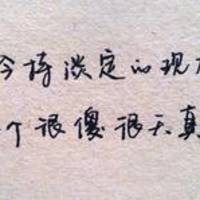 今持淡定的现
个很傻很天真